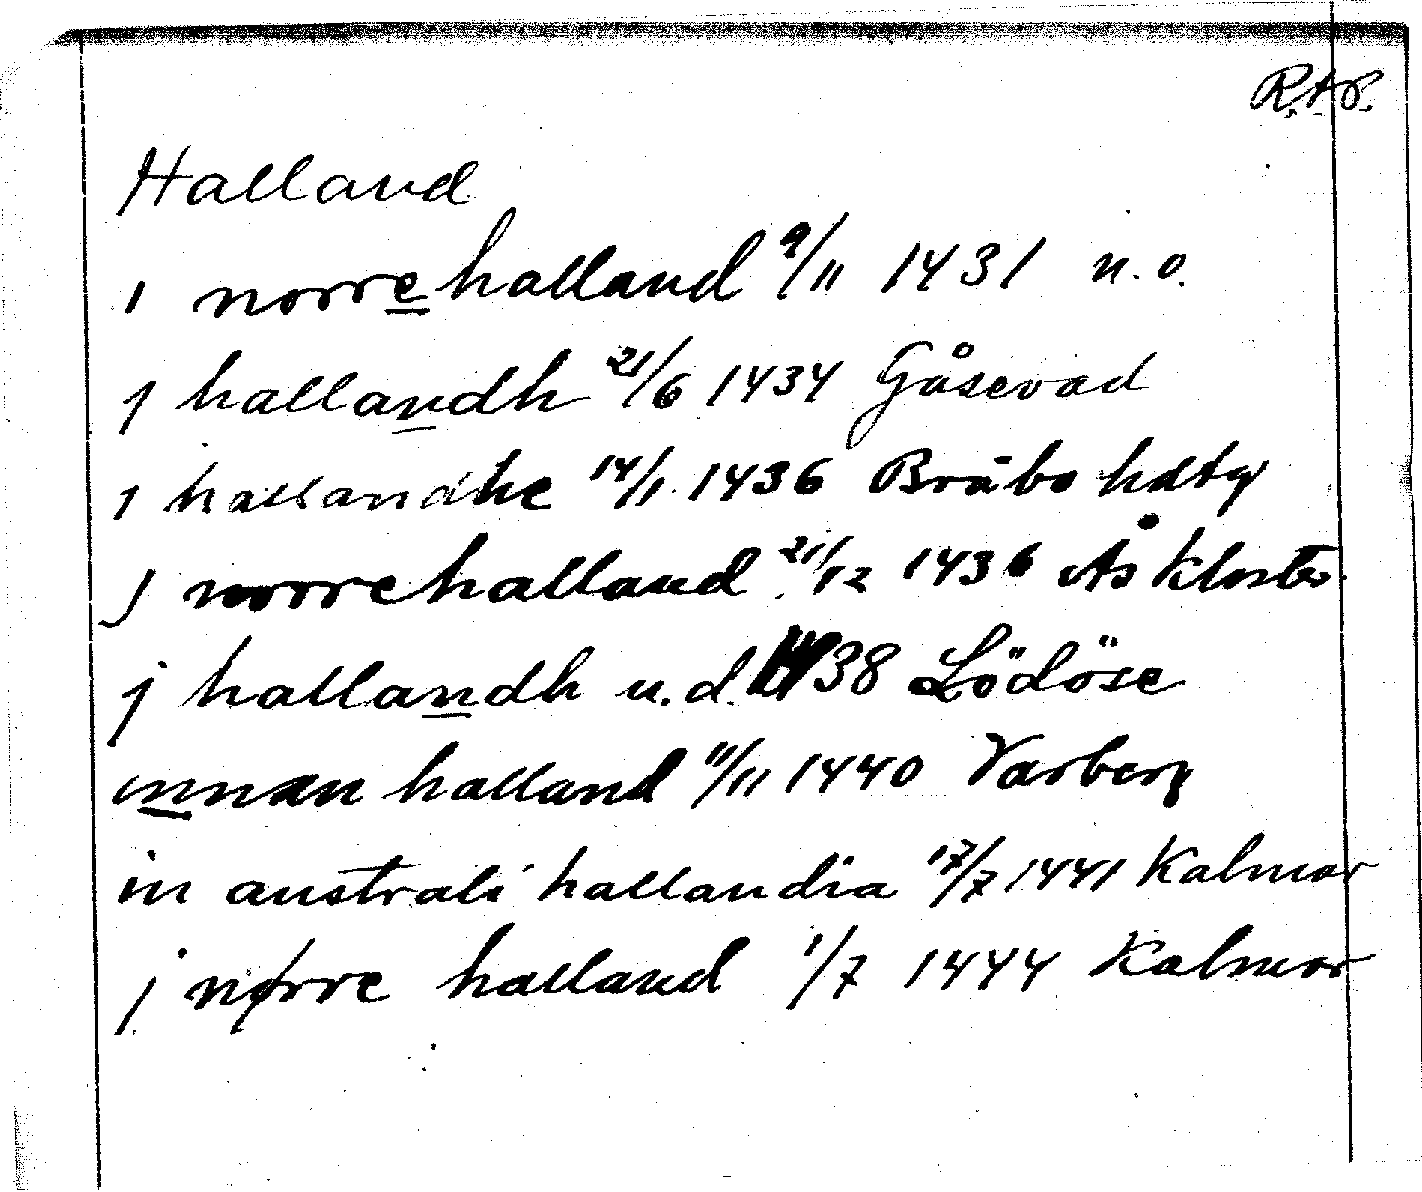 R.A.P.
Halland
i norrehalland 9/11 1431 u.o.
j hallandh 21/6 1434 Gåsevad
i hallandhe 14/1 1436 Bråbo hdtg
j norrehalland 21/12 1436 Ås Kloster
j hallandh u.d. 1438 Lödöse
innan halland 11/11 1440 Varberg
in australi hallandia 17/7 1441 Kalmar
j nørre halland 1/7 1444 Kalmar